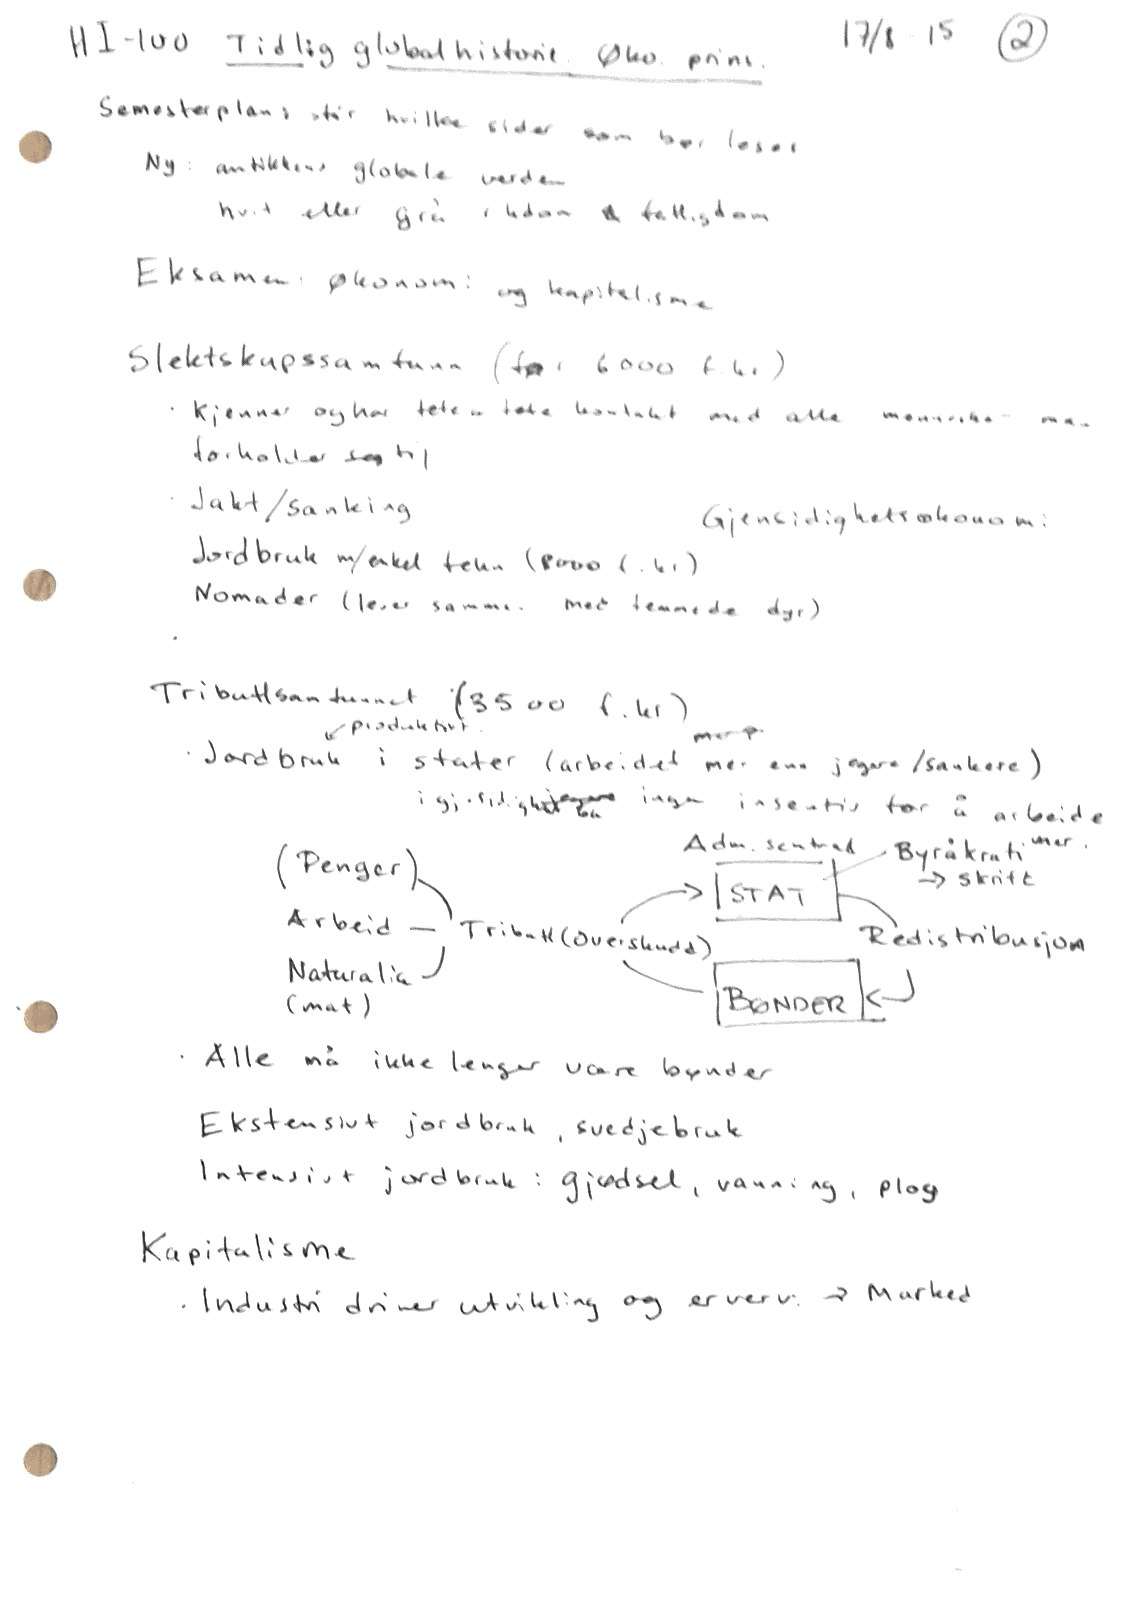 HI-100 Tidlig globalhistorie. Øko. prins. 17/8-15 2
Semesterplan: står hvilke sider som bør leses
Ny: antikkens globale verden
hvit eller grå rikdom & fattigdom
Eksamen: økonomi og kapitalisme
Slektskupssamfunn (før 6000 f.kr)
· Kjenner og har tete a tete kontakt med alle mennesker man
forholder seg til
· Jakt/sanking
Gjensidighetsøkonomi
Jordbruk m/enkel tekn (8000 f.kr)
Nomader (lever sammen med temmede dyr)
·
Tributtsamfunnet (3500 f.kr)
produktivt
mer
· Jordbruk i stater (arbeidet mer enn jegere/sankere)
i ingen insentiv for å arbeide
mer.
(Penger)
Arbeid
Naturalia
(mat)
Tributt (overskudd)
Adm. sentral
STAT
Byråkrati
→ skrift
Redistribusjon
BØNDER
· Alle må ikke lenger være bønder
Ekstensivt jordbruk, svedjebruk
Intensivt jordbruk: gjødsel, vanning, plog
Kapitalisme
· Industri driver utvikling og erverv. → Marked